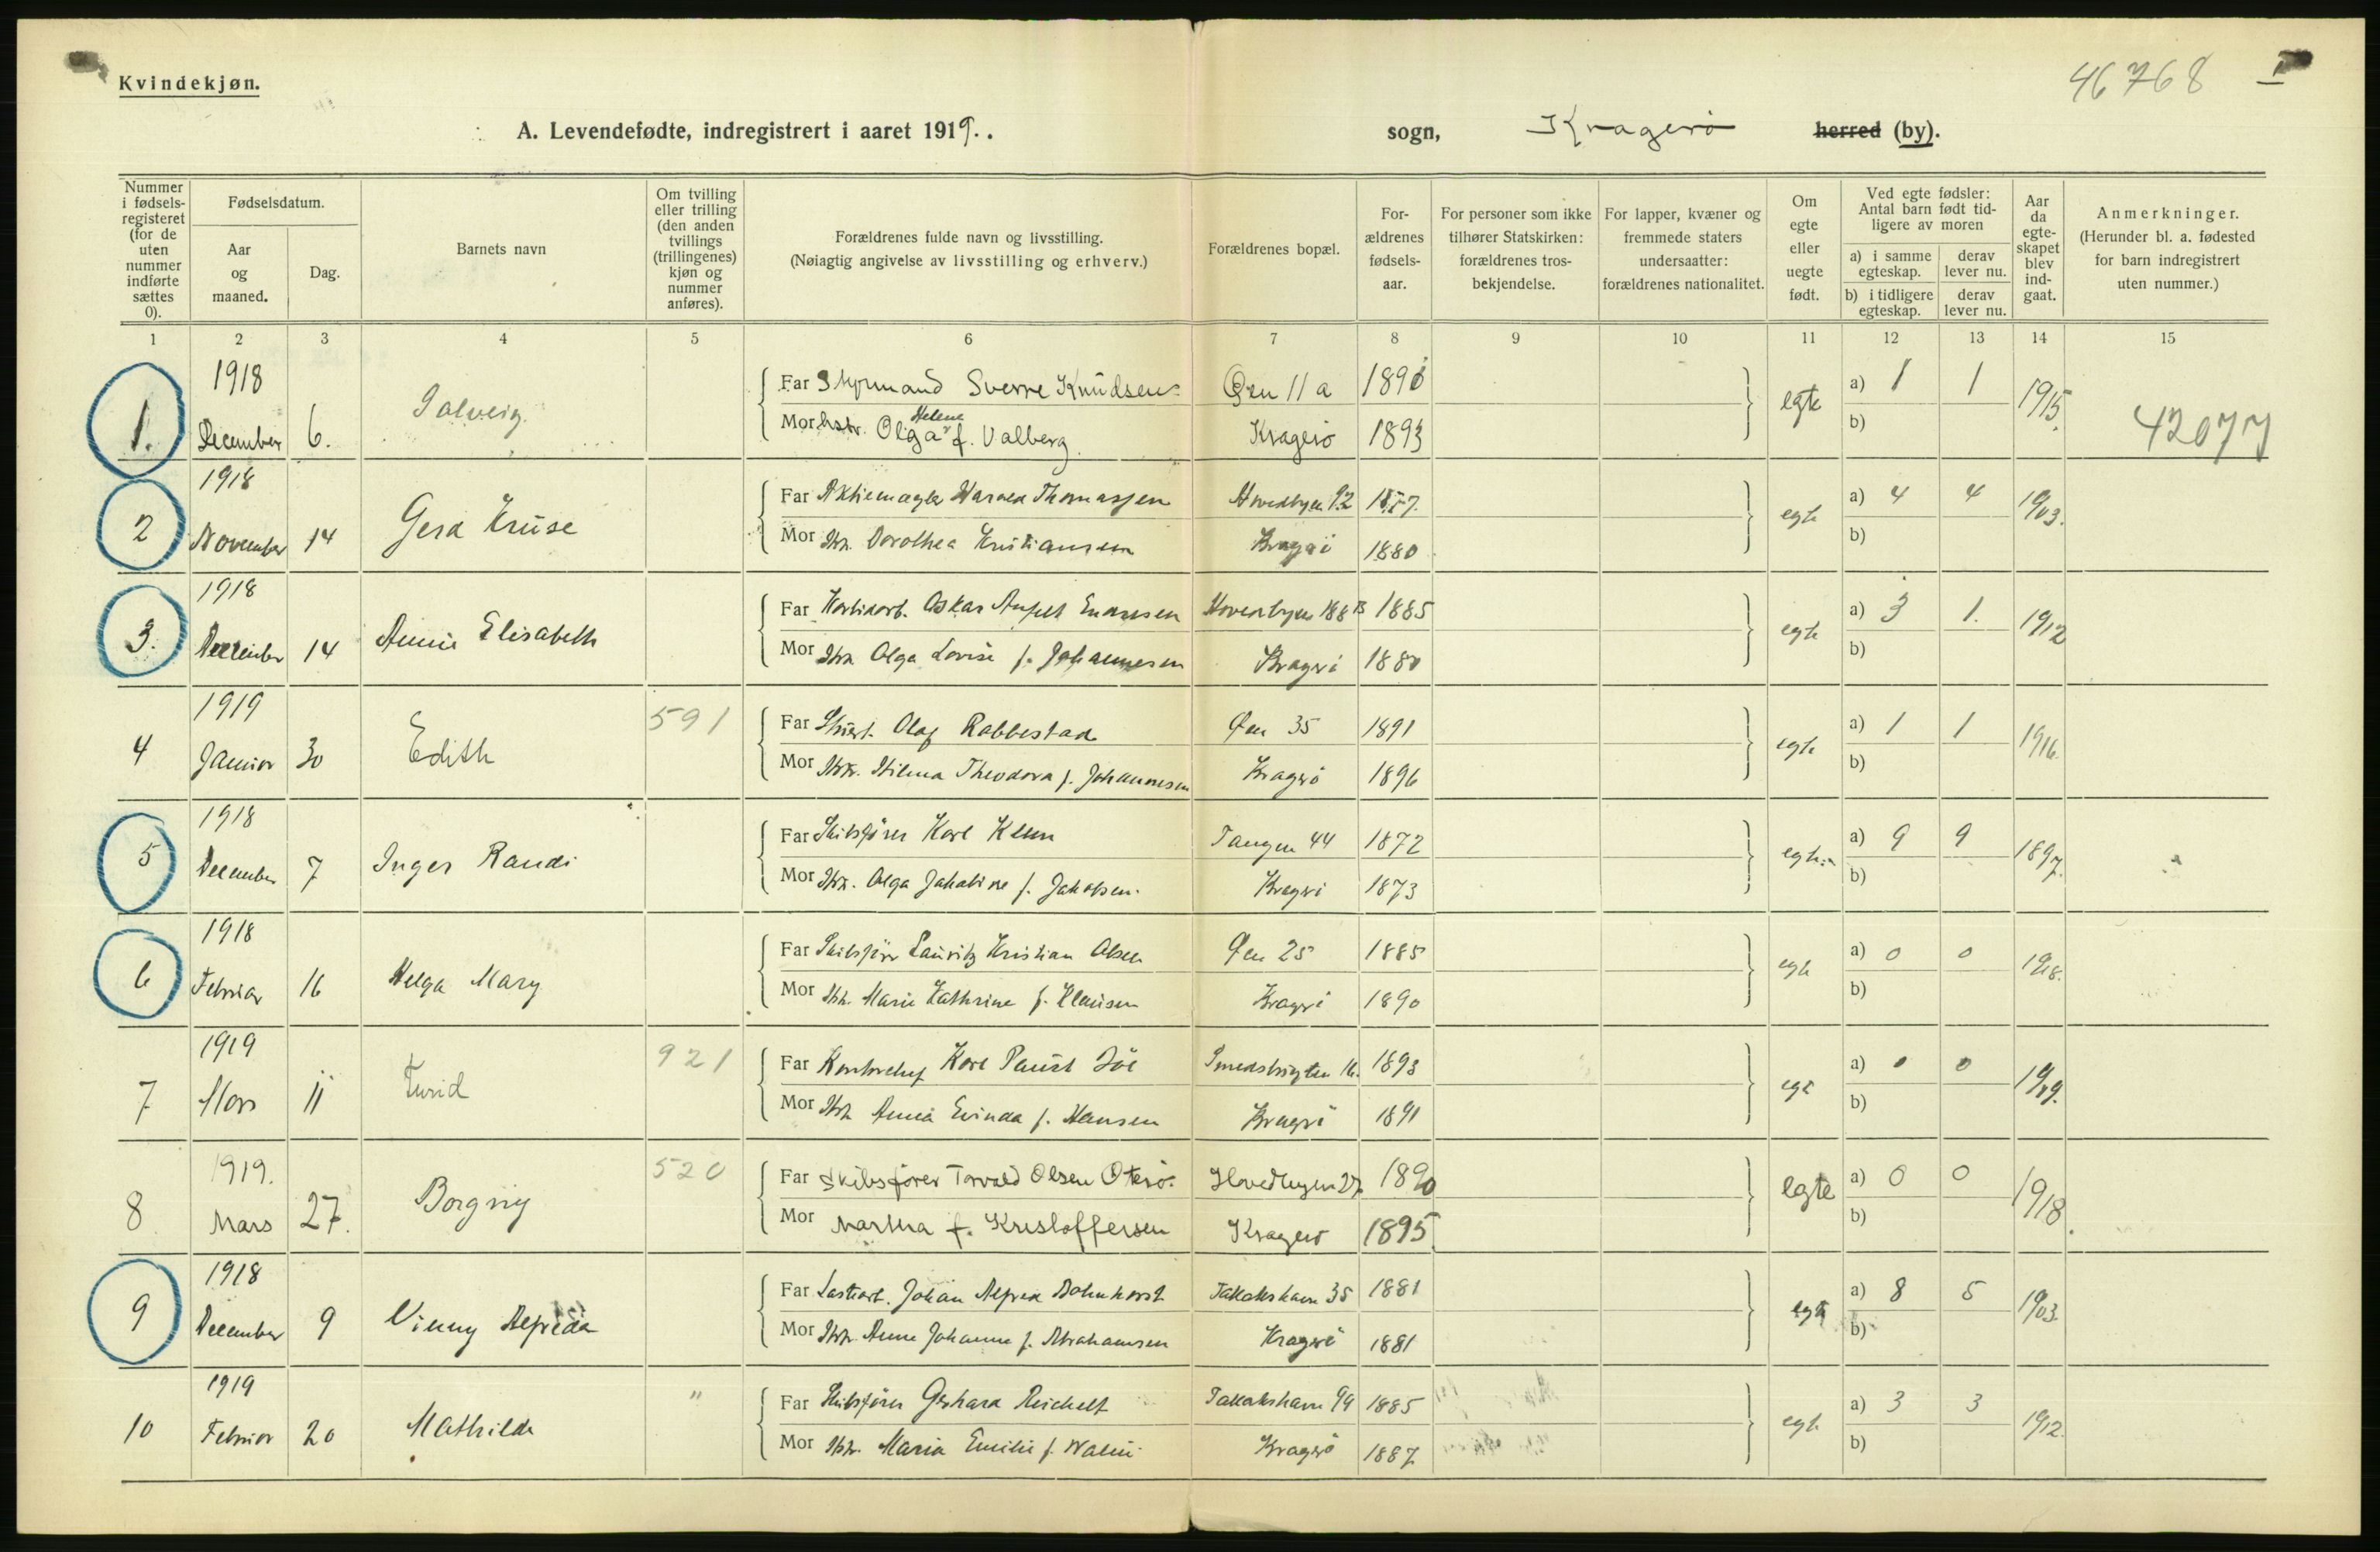 Kvindekjøn.
46768 I
A. Levendefødte, indregistrert i aaret 1919.. sogn, Kragerø herred (by).
Nummer i fødselsregisteret (for de uten nummer indførte sættes 0).
Fødselsdatum.
Aar og maaned.
Dag.
Barnets navn
Om tvilling eller trilling (den anden tvillings (trillingenes) kjøn og nummer anføres).
Forældrenes fulde navn og livsstilling.
(Nøiagtig angivelse av livsstilling og erhverv.)
Forældrenes bopæl.
Forældrenes fødselsaar.
For personer som ikke tilhører Statskirken: forældrenes trosbekjendelse.
For lapper, kvæner og fremmede staters undersaatter: forældrenes nationalitet.
Om egte eller uegte født.
Ved egte fødsler: Antal barn født tidligere av moren
a) i samme egteskap. derav lever nu.
b) i tidligere egteskap. derav lever nu.
Aar da egteskapet blev indgaat.
Anmerkninger.
(Herunder bl. a. fødested for barn indregistrert uten nummer.)
1 2 3 4 5 6 7 8 9 10 11 12 13 14 15
1. 1918 December 6. Solveig
Far Styrmand Sverre Knudsen Øen 11 a 189 egte a) 1 1 1915.
Mor hstr. Olga Helene f. Valberg Kragerø 1893 b) 42077
2 1918 November 14 Gerd Kruse
Far Aktiemægler Harald Thomassen Hovedbyen 92 1877. egte a) 4 4 1903.
Mor Htr. Dorothea Kristiansen Kragerø 1880 b)
3. 1918 December 14 Annie Elisabeth
Far Oskar Endresen Hovedbyen 188 B 1885 egte a) 3 1. 1912
Mor Htr. Olga Lovise f. Johannesen Kragerø 1880 b)
4 1919 Januar 30 Edith 591
Far Stuert. Olaf Rabbestad Øen 35 1891 egte a) 1 1 1916.
Mor Htr. Hilma Theodora f. Johannesen Kragerø 1896 b)
5 1918 December 7 Inger Randi
Far Skibsfører Karl Tangen 44 1872 egte a) 9 9 1897.
Mor Htr. Olga Jakobine f. Jakobsen. Kragerø 1873 b)
6 1918 Februar 16 Helga Mary
Far Skibsfører Lauritz Kristian Olsen Øen 25 1885 egte a) 0 0 1918.
Mor Htr. Marie Kathrine f. Klausen Kragerø 1890 b)
7 1919 Mars 11 Turid 921
Far Kontorchef Karl 1893 egte a) 0 0 1919.
Mor Htr. Anna f. Hansen Kragerø 1891 b)
8 1919. Mars 27. Borgny 520
Far Skibsfører Torvald Olsen Oterø. Hovedbyen 27. 1890 egte a) 0 0 1918.
Mor Martha f. Kristoffersen Kragerø 1895. b)
9 1918 December 9 Vinny Alfrida
Far Johan Alfred Bohnhorst 35 1881 egte a) 8 5 1903.
Mor Htr. Anne Johanne f. Abrahamsen Kragerø 1881 b)
10 1919 Februar 20 Mathilde "
Far Skibsfører Gerhard Reichelt 1885 egte a) 3 3 1912.
Mor Htr. Maria Emilie f. Kragerø 1887 b)